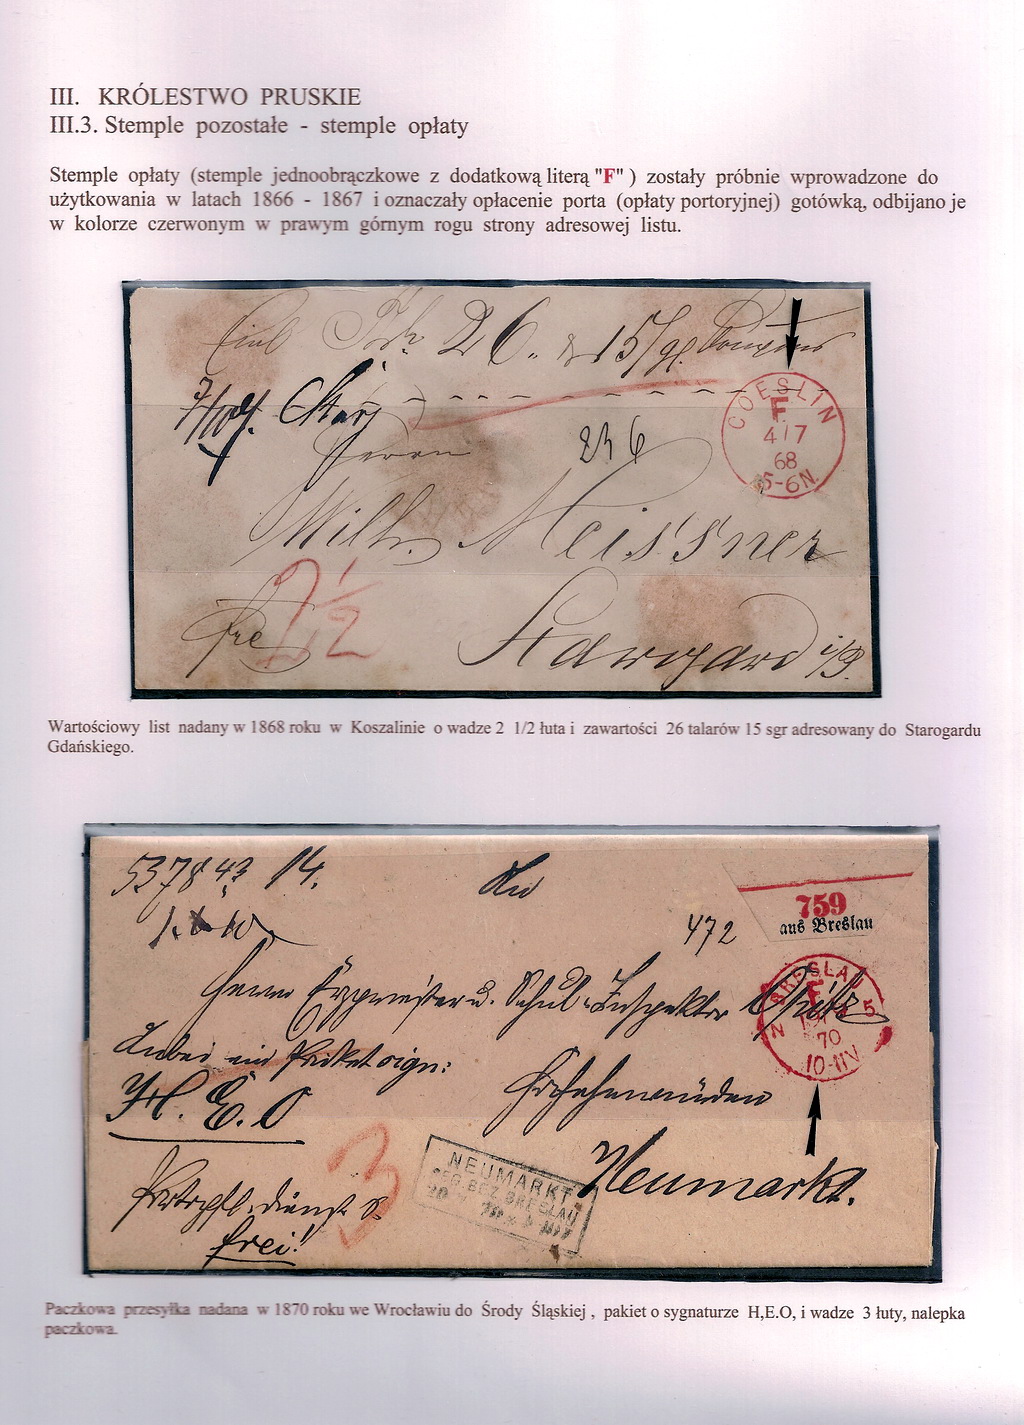 III. KRÓLESTWO PRUSKIE
III.3. Stemple pozostałe - stemple opłaty
Stemple opłaty (stemple jednoobrączkowe z dodatkową literą "F" ) zostały próbnie wprowadzone do
użytkowania w latach 1866 - 1867 i oznaczały opłacenie porta (opłaty portoryjnej) gotówką, odbijano je
w kolorze czerwonym w prawym górnym rogu strony adresowej listu.
26. 15
COESLIN
F.
4/7
68
5-6N.
Herrn
236
Wilh. Meissner
2 1/2
fre
Stargard i/P.
Wartościowy list nadany w 1868 roku w Koszalinie o wadze 2 1/2 łuta i zawartości 26 talarów 15 sgr adresowany do Starogardu
Gdańskiego.
14.
An
759
aus Breslau
472
BRESLAU
F
70
10-11V
Herrn Schul-Inspektor
Anbei ein Packet sign:
H. E. O
3
Neumarkt.
NEUMARKT
REG. BEZ. BRESLAU
frei!
Paczkowa przesyłka nadana w 1870 roku we Wrocławiu do Środy Śląskiej , pakiet o sygnaturze H,E.O, i wadze 3 łuty, nalepka
paczkowa.